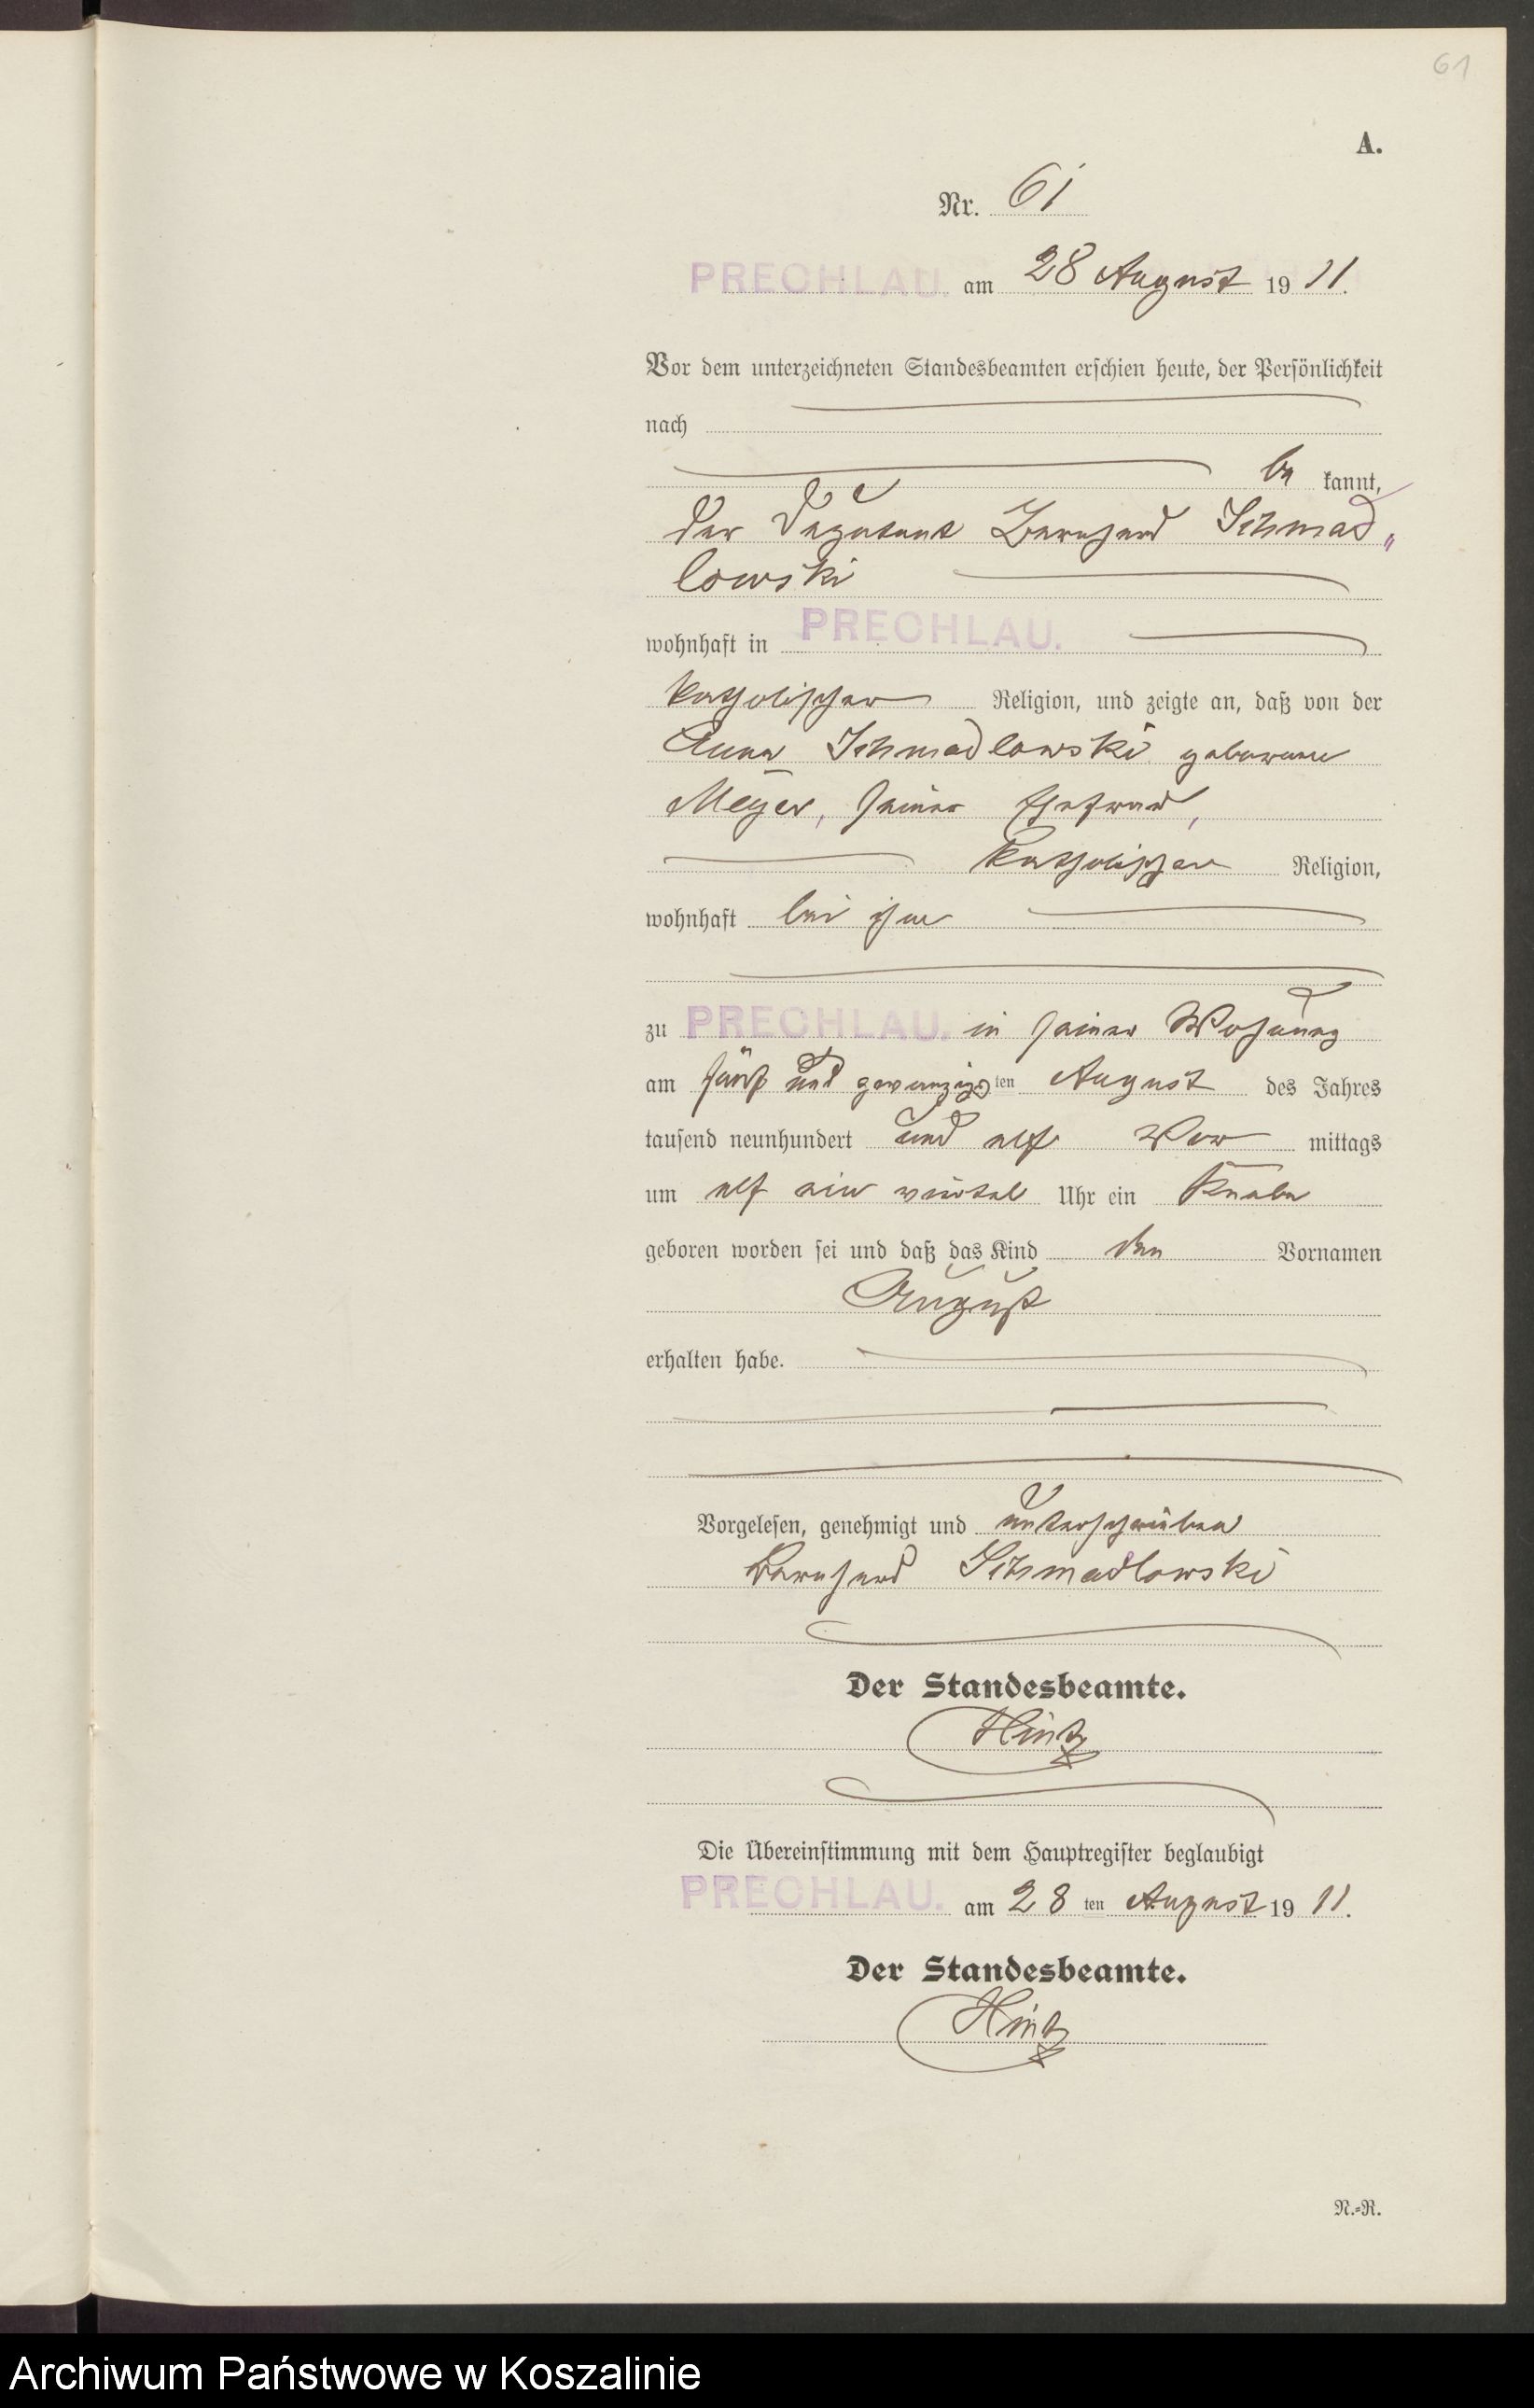 61
A.
Nr. 61
PRECHLAU. am 28 August 19 11.
Vor dem unterzeichneten Standesbeamten erschien heute, der Persönlichkeit
nach
be kannt,
der Deputant Bernhard Schmad„
lowski
wohnhaft in PRECHLAU.
katholischer Religion, und zeigte an, daß von der
Anna Schmadlowski geborenen
Meyer, seiner Ehefrau,
katholischer Religion,
wohnhaft bei ihm
zu PRECHLAU. in seiner Wohnung
am fünf und zwanzigsten August des Jahres
tausend neunhundert und elf Vor mittags
um elf ein viertel Uhr ein Knabe
geboren worden sei und daß das Kind den Vornamen
August
erhalten habe.
Vorgelesen, genehmigt und unterschrieben
Bernhard Schmadlowski
Der Standesbeamte.
Hintz
Die Übereinstimmung mit dem Hauptregister beglaubigt
PRECHLAU. am 28 ten August 19 11.
Der Standesbeamte.
Hintz
N.-R.
Archiwum Państwowe w Koszalinie